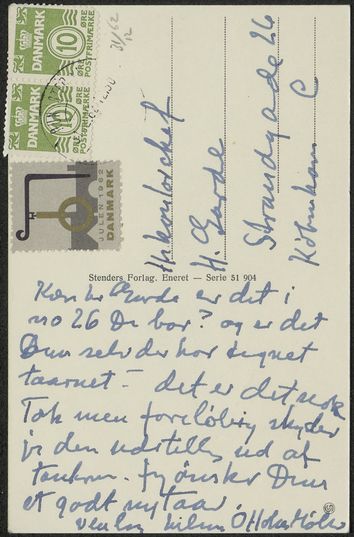 31/12 62
10
ØRE
DANMARK
POSTFRIMÆRKE
10
ØRE
DANMARK
POSTFRIMÆRKE
JULEN 1962
DANMARK
H. Garde
Strandgade 26
København C
Stenders Forlag. Eneret — Serie 51 904
Kære hr Garde er det i
no 26 De bor? og er det
Dem selv der har tegnet
taarnet – det er det nok
Tak men foreløbig skyder
vi den udstilles ud af
tanken. Jeg ønsker Dem
et godt nytaar
venlig hilsen